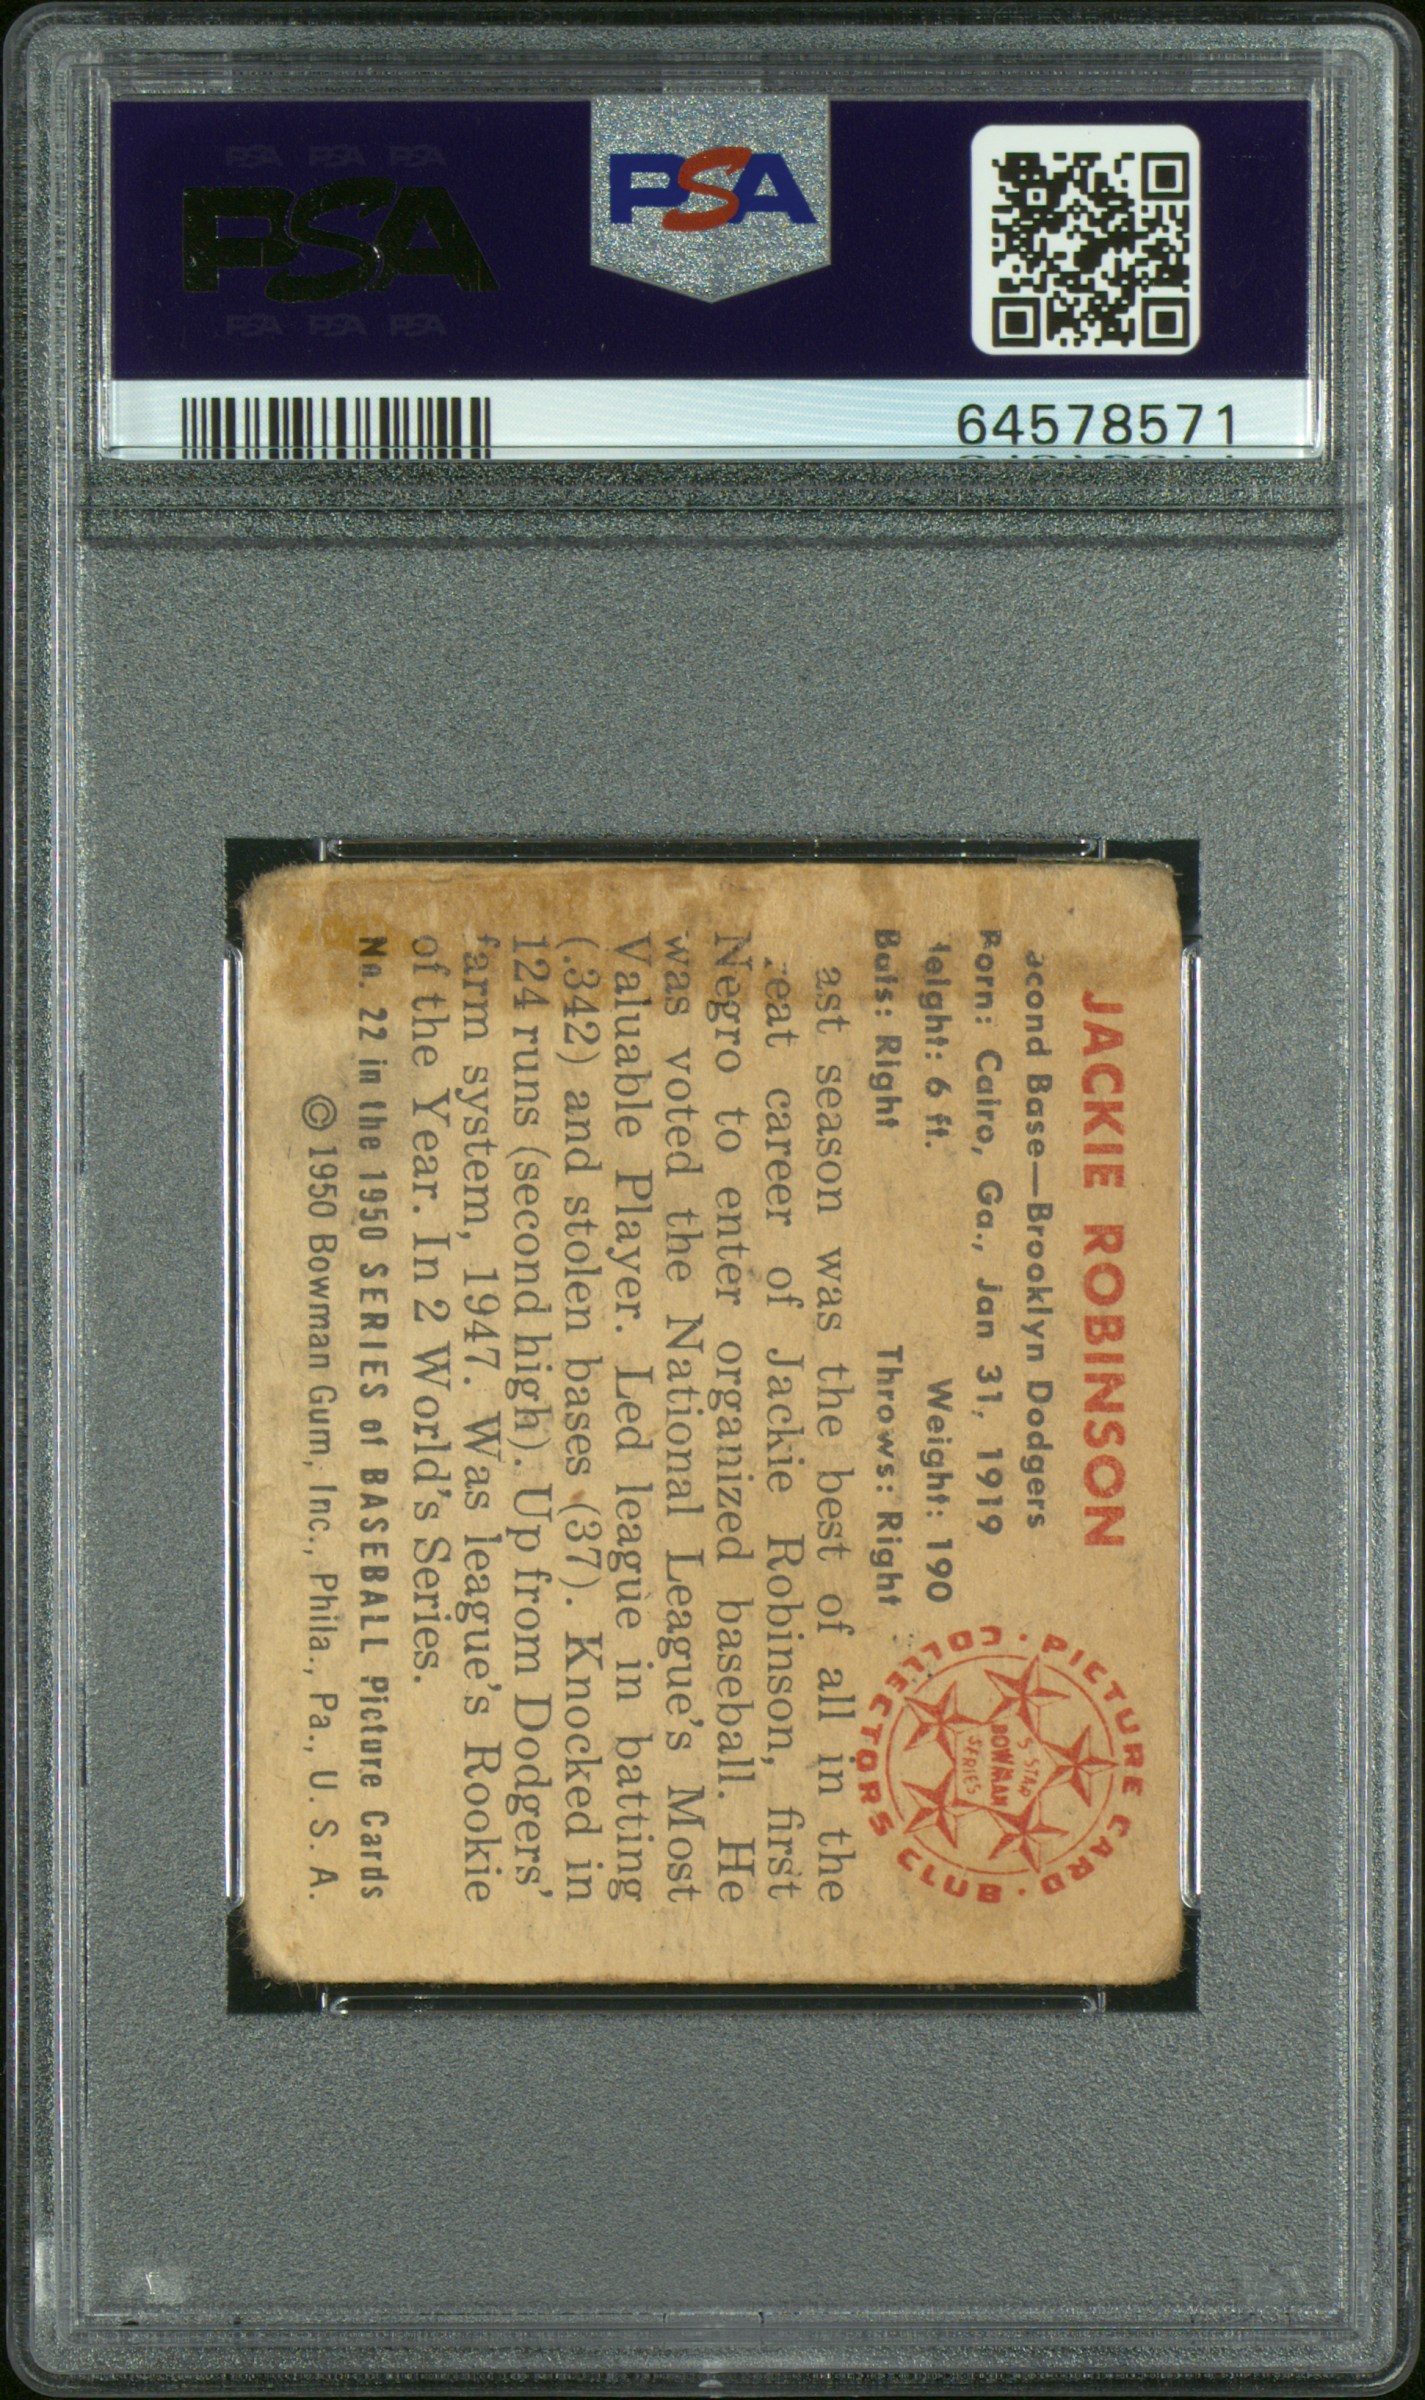 PSA PSA PSA
PSA
PSA PSA PSA
PSA
64578571
JACKIE ROBINSON
cond Base—Brooklyn Dodgers
Born: Cairo, Ga., Jan 31, 1919
eight: 6 ft. Weight: 190
Bats: Right Throws: Right
PICTURE CARD · CLUB
COLLECTORS
5 STAR
BOWMAN
SERIES
ast season was the best of all in the
reat career of Jackie Robinson, first
Negro to enter organized baseball. He
was voted the National League's Most
Valuable Player. Led league in batting
(.342) and stolen bases (37). Knocked in
124 runs (second high). Up from Dodgers'
farm system, 1947. Was league's Rookie
of the Year. In 2 World's Series.
No. 22 in the 1950 SERIES of BASEBALL Picture Cards
© 1950 Bowman Gum, Inc., Phila., Pa., U. S. A.